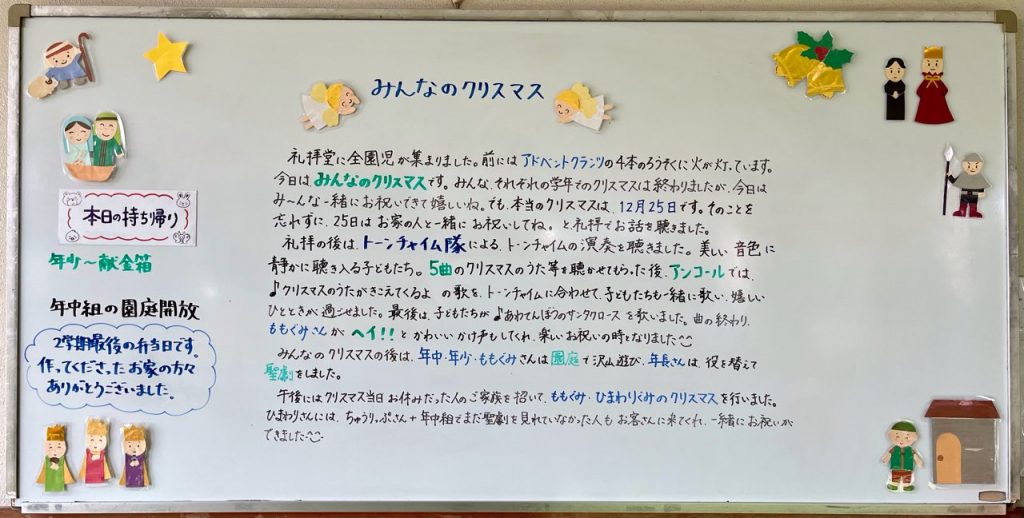 みんなのクリスマス
礼拝堂に全園児が集まりました。前にはアドベントクランツの4本のろうそくに火が灯っています。
今日はみんなのクリスマスです。みんな、それぞれの学年でのクリスマスは終わりましたが、今日は
み〜んな一緒にお祝いできて嬉しいね。でも、本当のクリスマスは、12月25日です。そのことを
忘れずに、25日はお家の人と一緒にお祝いしてね。と礼拝でお話を聴きました。
礼拝の後は、トーンチャイム隊による、トーンチャイムの演奏を聴きました。美しい音色に
静かに聴き入る子どもたち。5曲のクリスマスのうた等を聴かせてもらった後、アンコールでは、
♪クリスマスのうたがきこえてくるよ の歌を、トーンチャイムに合わせて、子どもたちも一緒に歌い、嬉しい
ひとときが過ごせました。最後は、子どもたちが♪あわてんぼうのサンタクロース を歌いました。曲の終わり、
ももぐみさんが、ヘイ!!とかわいいかけ声もしてくれ、楽しいお祝いの時となりました
みんなのクリスマスの後は、年中・年少・ももぐみさんは園庭で沢山遊び、年長さんは、役を替えて
聖劇をしました。
午後にはクリスマス当日お休みだった人のご家族を招いて、ももぐみ・ひまわりぐみのクリスマスを行いました。
ひまわりさんには、ちゅうりっぷさん+年中組でまだ聖劇を見れていなかった人もお客さんに来てくれ、一緒にお祝いが
できました
本日の持ち帰り
年少〜献金箱
年中組の園庭開放
2学期最後の弁当日です。
作ってくださったお家の方々
ありがとうございました。